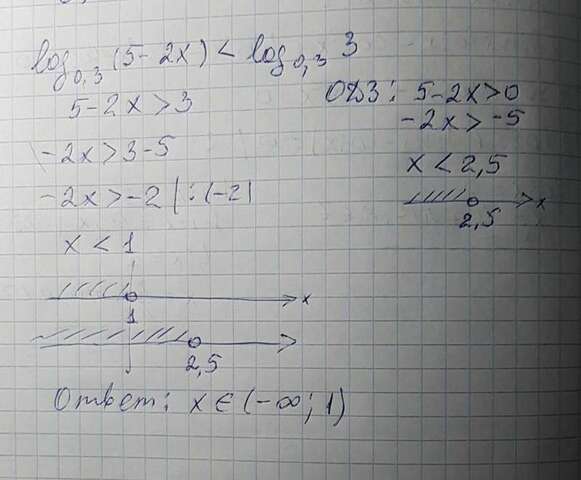 log₀,₃(5-2x) < log₀,₃ 3
5-2x>3
-2x>3-5
-2x>-2 |:(-2)
x < 1
x
1
2,5
ОДЗ: 5-2x>0
-2x>-5
x < 2,5
x
2,5
Ответ: x ∈ (-∞; 1)